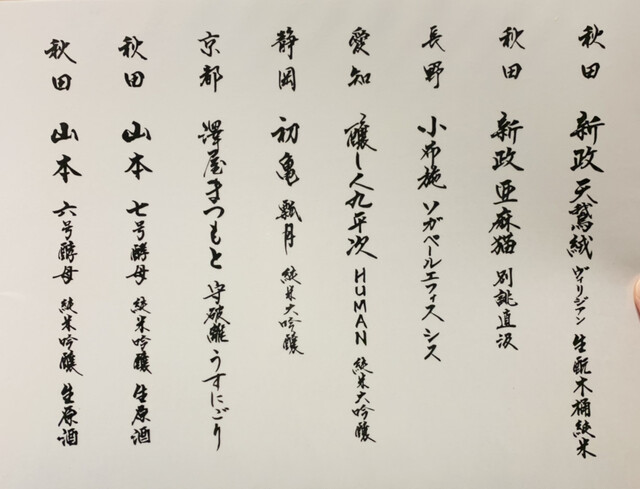 秋田 新政 天鵞絨 ヴィリジアン 生酛木桶純米
秋田 新政 亜麻猫 別誂直汲
長野 小布施 ソガペールエフィス シス
愛知 醸し人九平次 HUMAN 純米大吟醸
静岡 初亀 瓢月 純米大吟醸
京都 澤屋まつもと 守破離 うすにごり
秋田 山本 七号酵母 純米吟醸 生原酒
秋田 山本 六号酵母 純米吟醸 生原酒